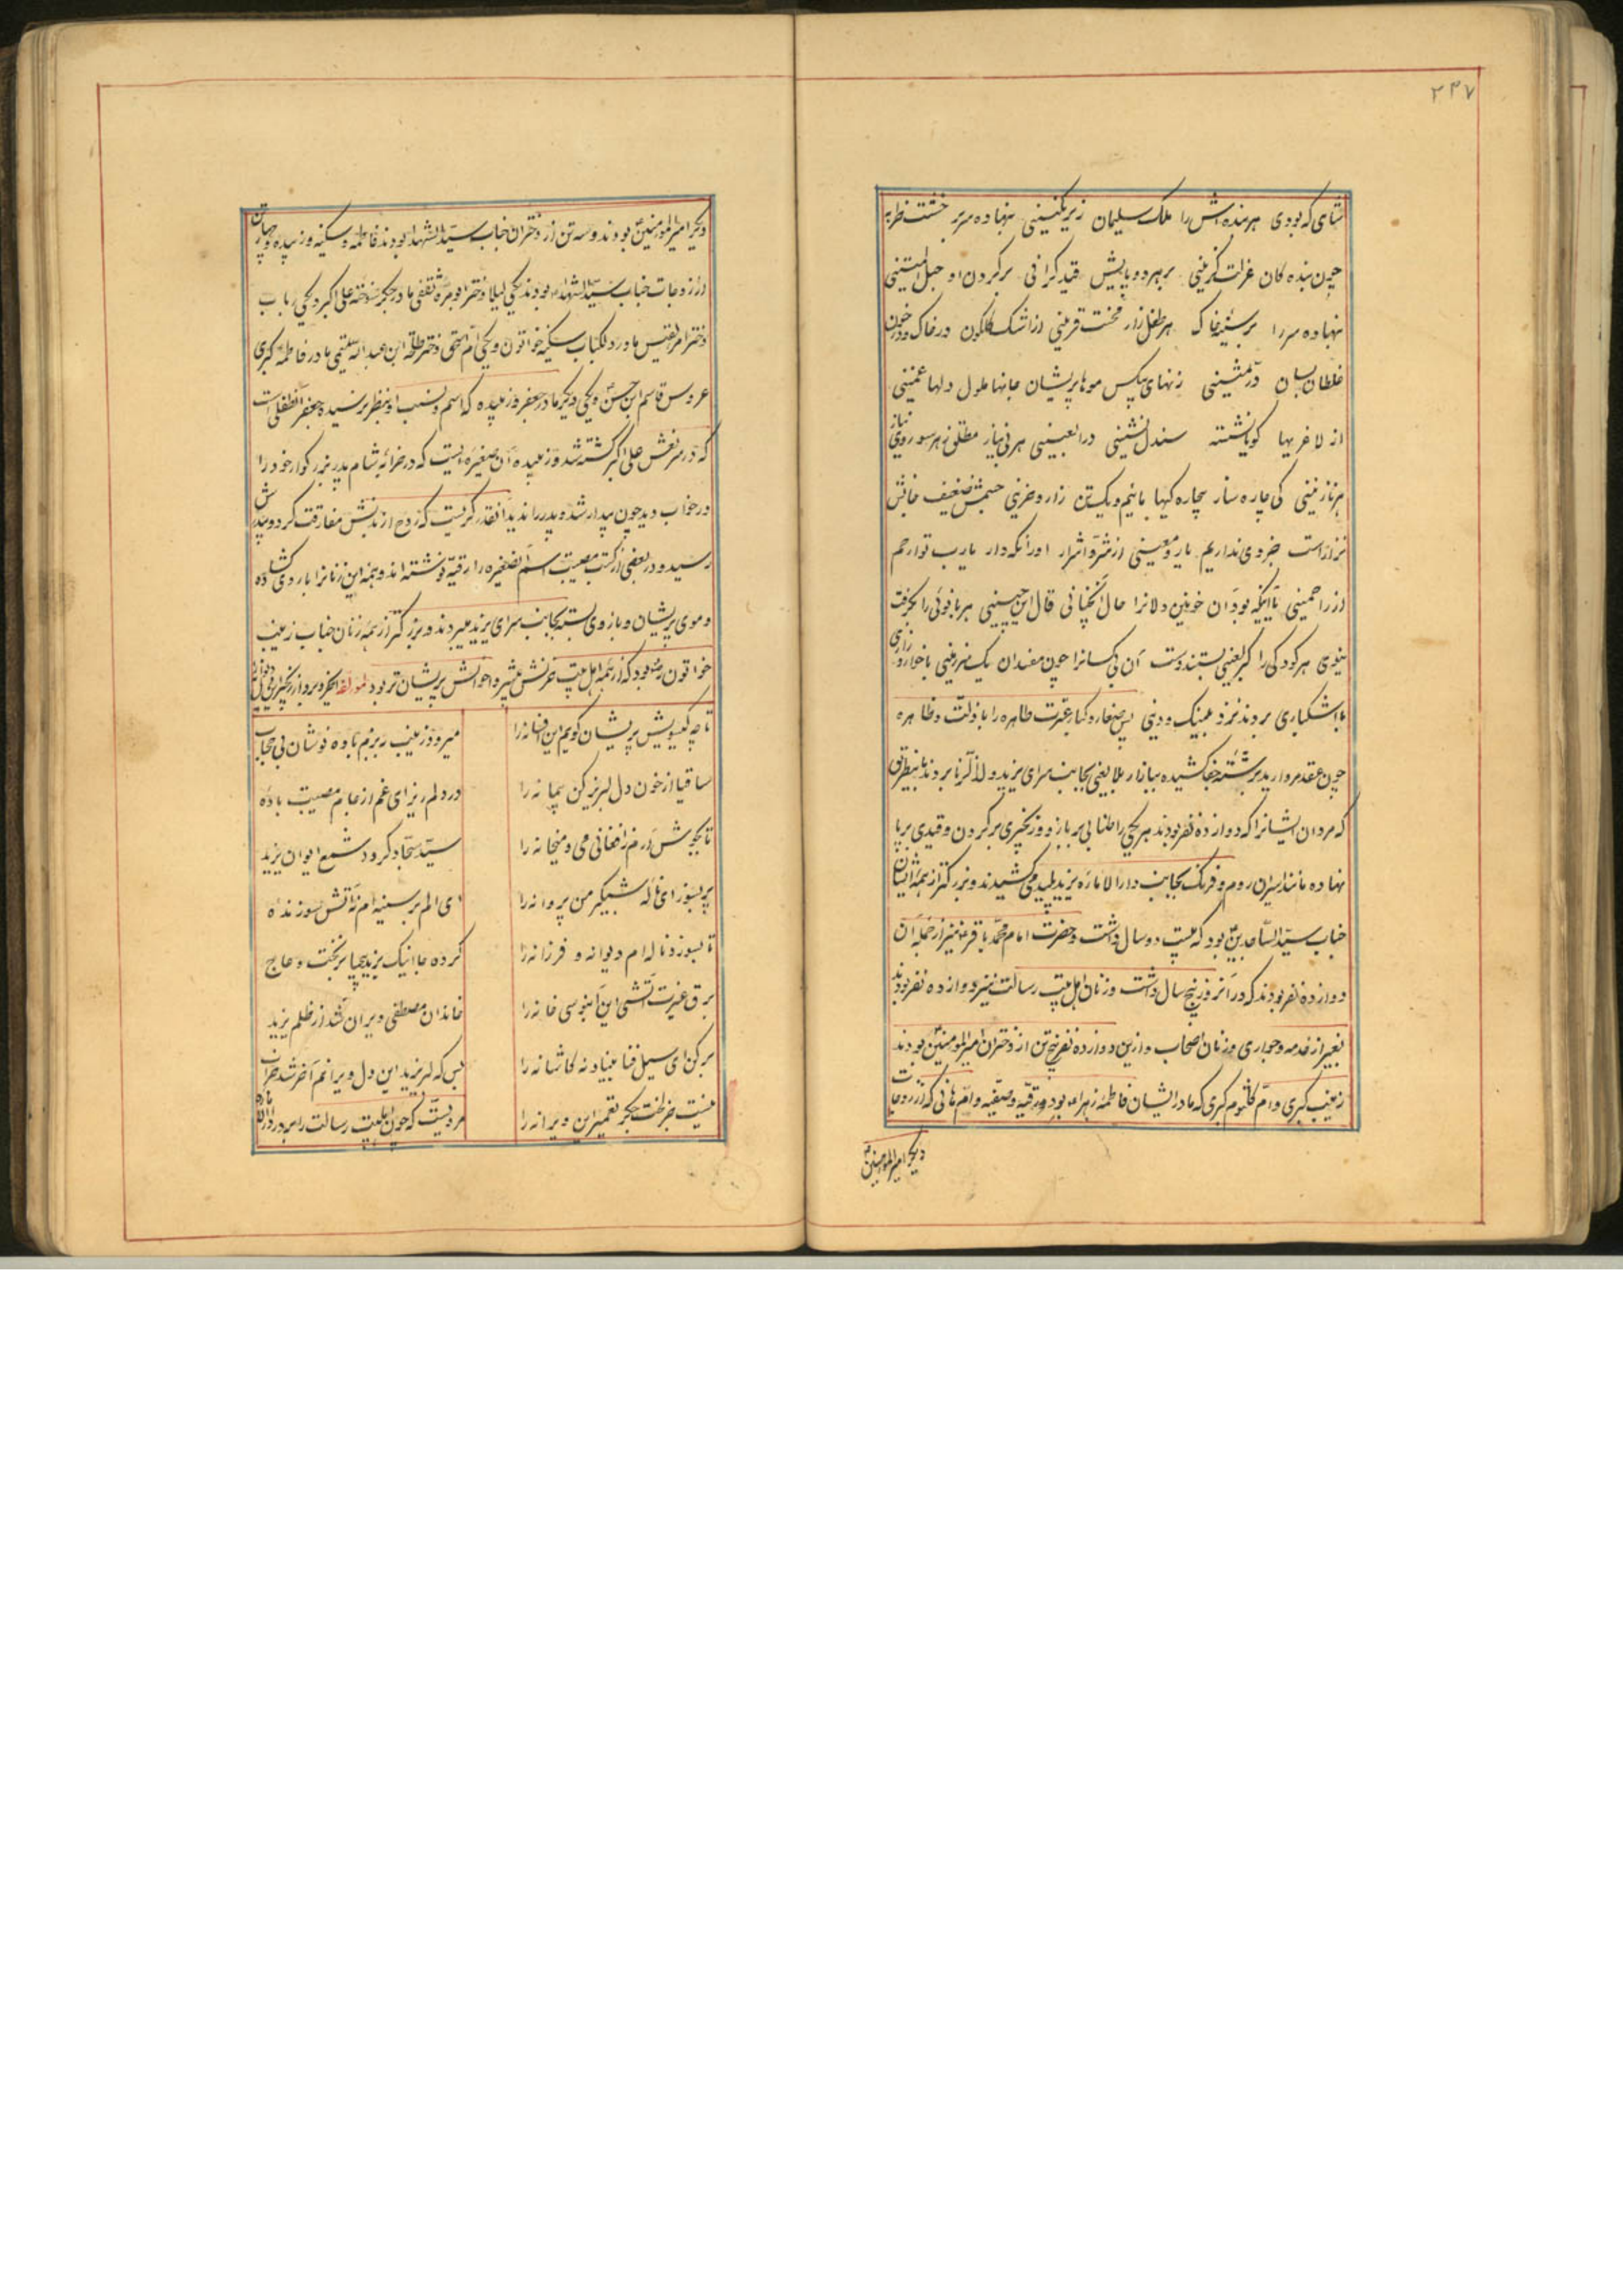 ۲۳۷
شاهی که بودی هر بنده‌اش را ملک سلیمان زیر نگینی نهاده سر بر خشت
چون بنده کان عزلت گزینی بر هر دو پایش قید گرانی بر گردن او حبل المتینی
نهاده سر را بر سینه خاک هر طفل زار محنت قرینی از اشک گلگون در خاک و در خون
غلطان بسان در ثمینی زنهای بیکس موها پریشان جانها ملول دلها غمینی
از لاغریها کویا نشسته هر بی نیاز هر سو روی نیاز
هر نازنینی کی چاره ساز بیچاره کیها مائیم و یک تن زار و حزینی جسمش ضعیف جانش
نزار است جز وی نداریم یار و معینی از شر اشرار او را نکه دار یا رب تو ارحم
از راحمینی تا اینکه بود آن خونین دلانرا حال آنچنانی قال این چنینی هر بانوئی را بگرفت
هر کودکی را بستند دست آن بیکسانرا چون مفسدان با خوار و زاری
با اشکباری بردند نزد پس صغار و کبار عترت طاهره را با ذلت
چون عقد مروارید بر رشته جفا کشیده ببازار بلا یعنی بجانب سرای یزید ولد الزنا بردند باینطریق
که مردان ایشانرا که دوازده نفر بودند هر یکی را طنابی بر بازو و زنجیری بر گردن و قیدی بر پا
نهاده مانند اسیران روم و فرنک بجانب دار الاماره یزید پلید می کشیدند و بزرکتر از همه ایشان
جناب سید الساجدین بود که بیست دو سال داشت و حضرت امام محمد باقر نیز از جمله آن
دوازده نفر بودند که در آنروز پنج سال داشت و زنان اهل بیت رسالت نیز دوازده نفر بودند
بغیر از خدمه و جواری و زنان اصحاب و ازین دوازده نفر پنج تن از دختران امیر المومنین بودند
زینب کبری و ام کلثوم کبری که مادر ایشان فاطمه زهراء بود و رقیه و صفیه و ام هانی که از زوجات
دیگر امیر المومنین
دیگر امیر المومنین بودند و سه تن از دختران جناب سید الشهدا بودند فاطمه و سکینه و زبیده و چهار تن
از زوجات جناب سید الشهداء بودند یکی لیلا دختر ابو مره ثقفی مادر جکر سوخته علی اکبر و یکی رباب
دختر امرء القیس مادر سکینه خواتون و یکی ام اسحق دختر طلحه ابن عبد الله تیمی مادر فاطمه کبری
عروس قاسم ابن حسن و یکی دیگر مادر جعفر و زبیده که اسم و نسب او بنظر نرسیده و جعفر آنطفلی است
که در سر نعش علی اکبر کشته شد و زبیده آن صغیره ایست که در خرابه شام پدر بزرگوار خود را
در خواب دید چون بیدار شد و پدر را ندید آنقدر کریست که روح از بدنش مفارقت کرد و
رسید و در بعضی از کتب مصیبت اسم آنصغیره را رقیه نوشته اند و همه این زنانرا با روی کشاده
و موی پریشان و بازوی بسته بجانب سرای یزید میبردند و بزرگتر از همه زنان جناب زینب
خواتون بود که از همه اهل بیت حزنش بیشتر و احوالش پریشان تر بود لمولفه
تا چه کیسویش پریشان کویم این افسانه را
میرود زینب به بزم باده نوشان بی حجاب
ساقیا از خون دل لبریز کن پیمانه را
در دلم ریز ای غم از جام مصیبت باده
تا بجوش آرم ز افغانی می و میخانه را
سید سجاد کرد شمع ایوان یزید
پر بسوز ای ناله شبکیر من پروانه را
ای الم بر سینه ام آتش سوزنده
تا بسوزد ناله ام دیوانه و فرزانه را
کرده جا اینک یزید بیحیا بر تخت عاج
برق غیرت آتشی این آبنوسی خانه را
خاندان مصطفی ویران شد از ظلم یزید
بر کن ای سیل فنا بنیاد نه کاشانه را
بس که لرزید این دل ویرانم آخر شد خراب
نیست جز لخت جکر تعمیر این ویرانه را
مرویست که چون اهلبیت رسالت را